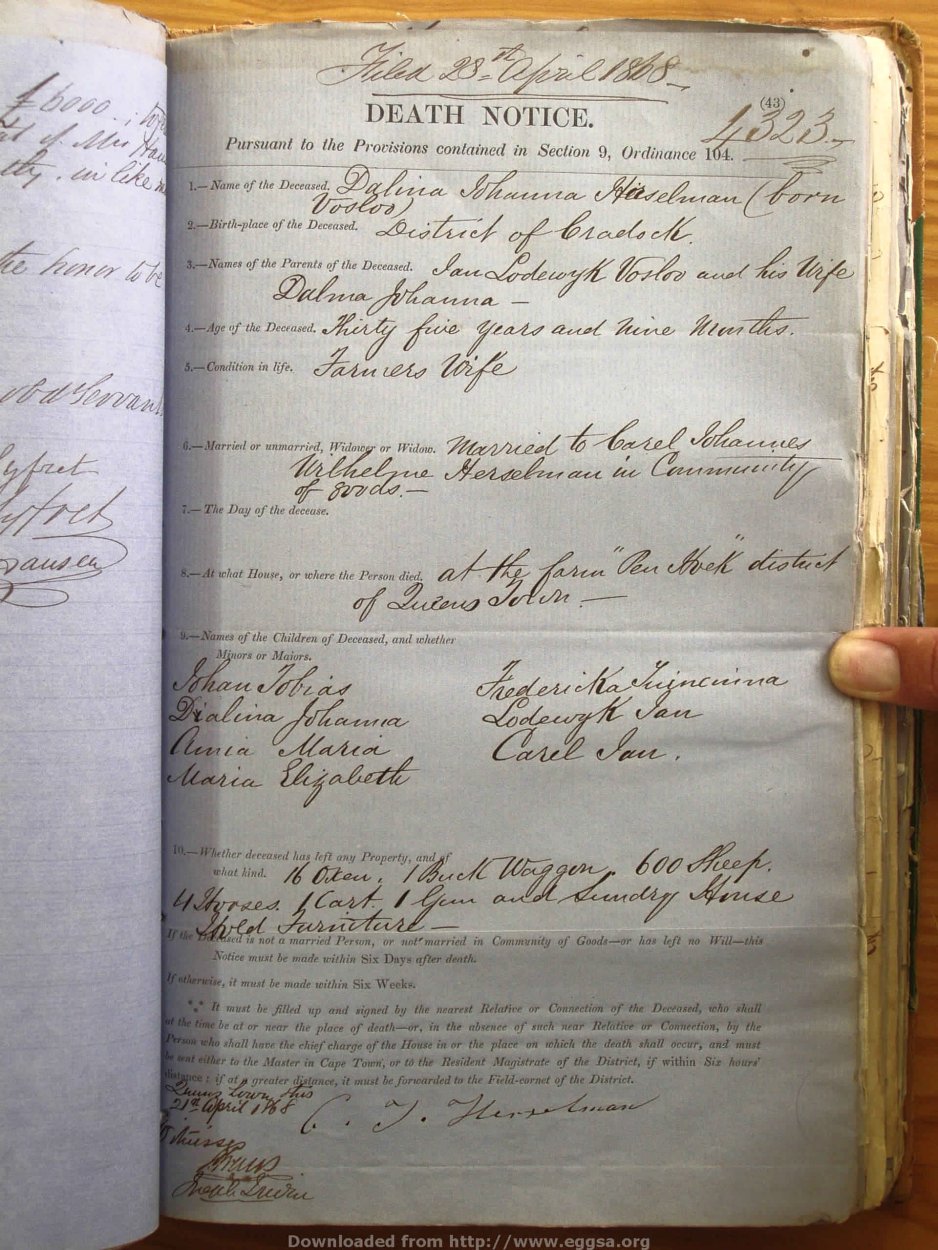 £ 6000
in like
the honor to be
Servant
Filed 28th April 1868
(43)
DEATH NOTICE.
4323
Pursuant to the Provisions contained in Section 9, Ordinance 104.
1.—Name of the Deceased. Dalina Johanna Haselman (born
Vosloo)
2.—Birth-place of the Deceased. District of Cradock.
3.—Names of the Parents of the Deceased. Jan Lodewyk Vosloo and his Wife
Dalina Johanna —
4.—Age of the Deceased. Thirty five years and nine Months.
5.—Condition in life. Farmers Wife
6.—Married or unmarried, Widower or Widow. Married to Carel Johannes
Wilhelme Herselman in Community
of goods.—
7.—The Day of the decease.
8.—At what House, or where the Person died. at the farm "Pen Hoek" district
of Queens Town —
9.—Names of the Children of Deceased, and whether
Minors or Majors.
Johan Tobias Frederika
Dialina Johanna Lodewyk Jan
Anna Maria Carel Jan.
Maria Elizabeth
10.—Whether deceased has left any Property, and of
what kind. 16 Oxen, 1 Buck Waggon, 600 Sheep.
4 Horses. 1 Cart. 1 Gun and Sundry House
Hold Furniture —
If the Deceased is not a married Person, or not married in Community of Goods—or has left no Will—this
Notice must be made within Six Days after death.
If otherwise, it must be made within Six Weeks.
*** It must be filled up and signed by the nearest Relative or Connection of the Deceased, who shall
at the time be at or near the place of death—or, in the absence of such near Relative or Connection, by the
Person who shall have the chief charge of the House in or the place on which the death shall occur, and must
be sent either to the Master in Cape Town, or to the Resident Magistrate of the District, if within Six hours'
distance; if at a greater distance, it must be forwarded to the Field-cornet of the District.
Queens Town this
21st April 1868
C. J. Herselman
Witnesses
Downloaded from http://www.eggsa.org